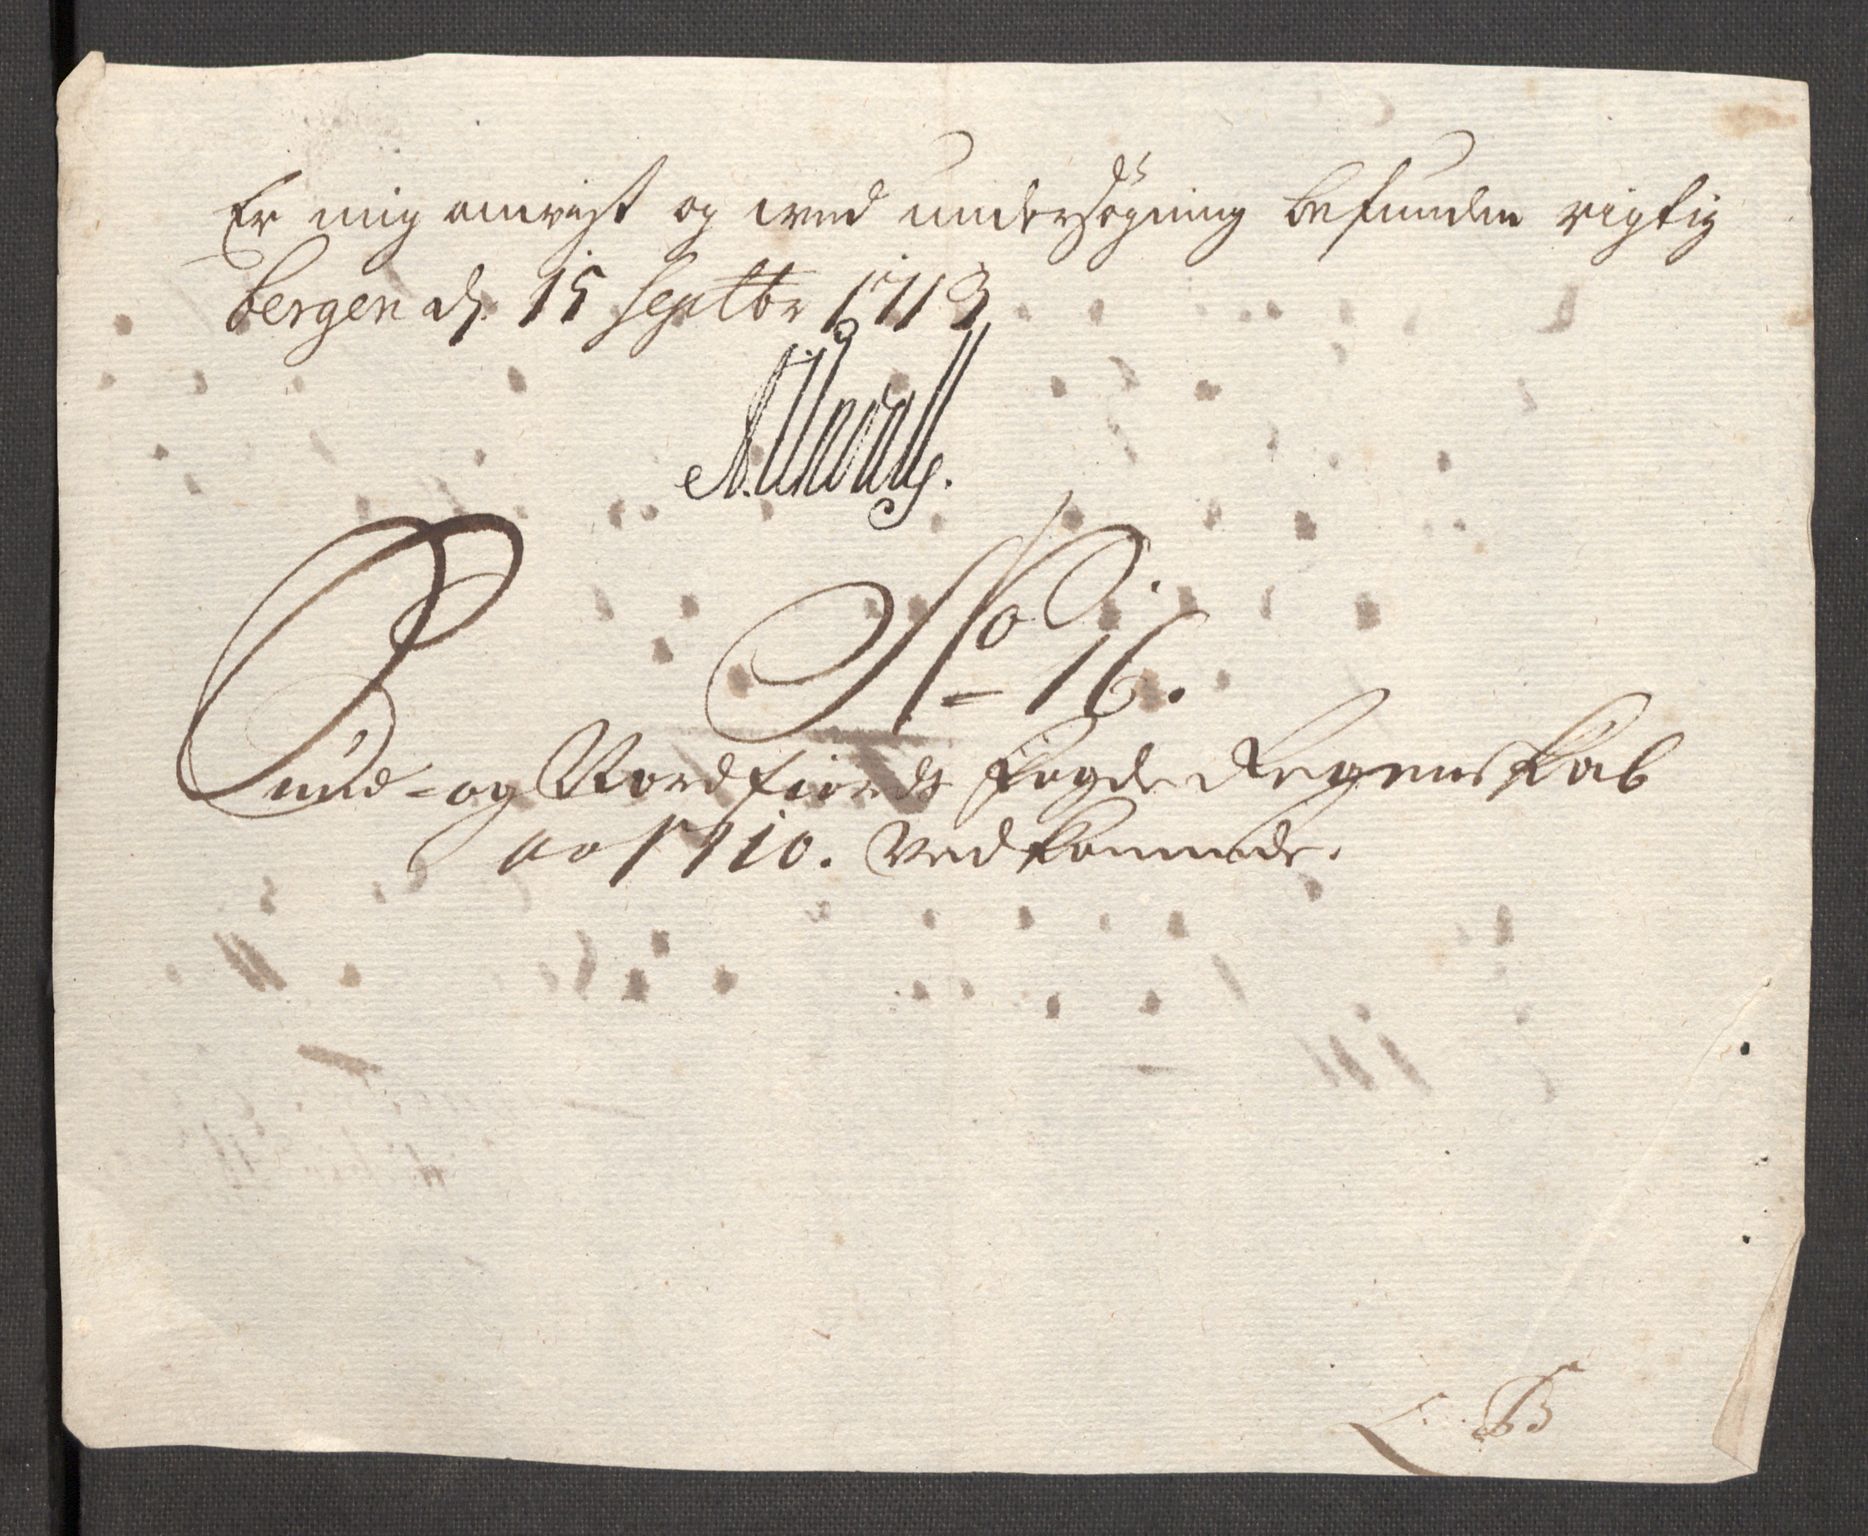 Er mig anvist og ved undersögning befunden rigtig
Bergen d. 15 Septbr 1713
No 16.
Sund- og Nordfiords Fogde Regenskab
Ao 1710. Vedkommende.